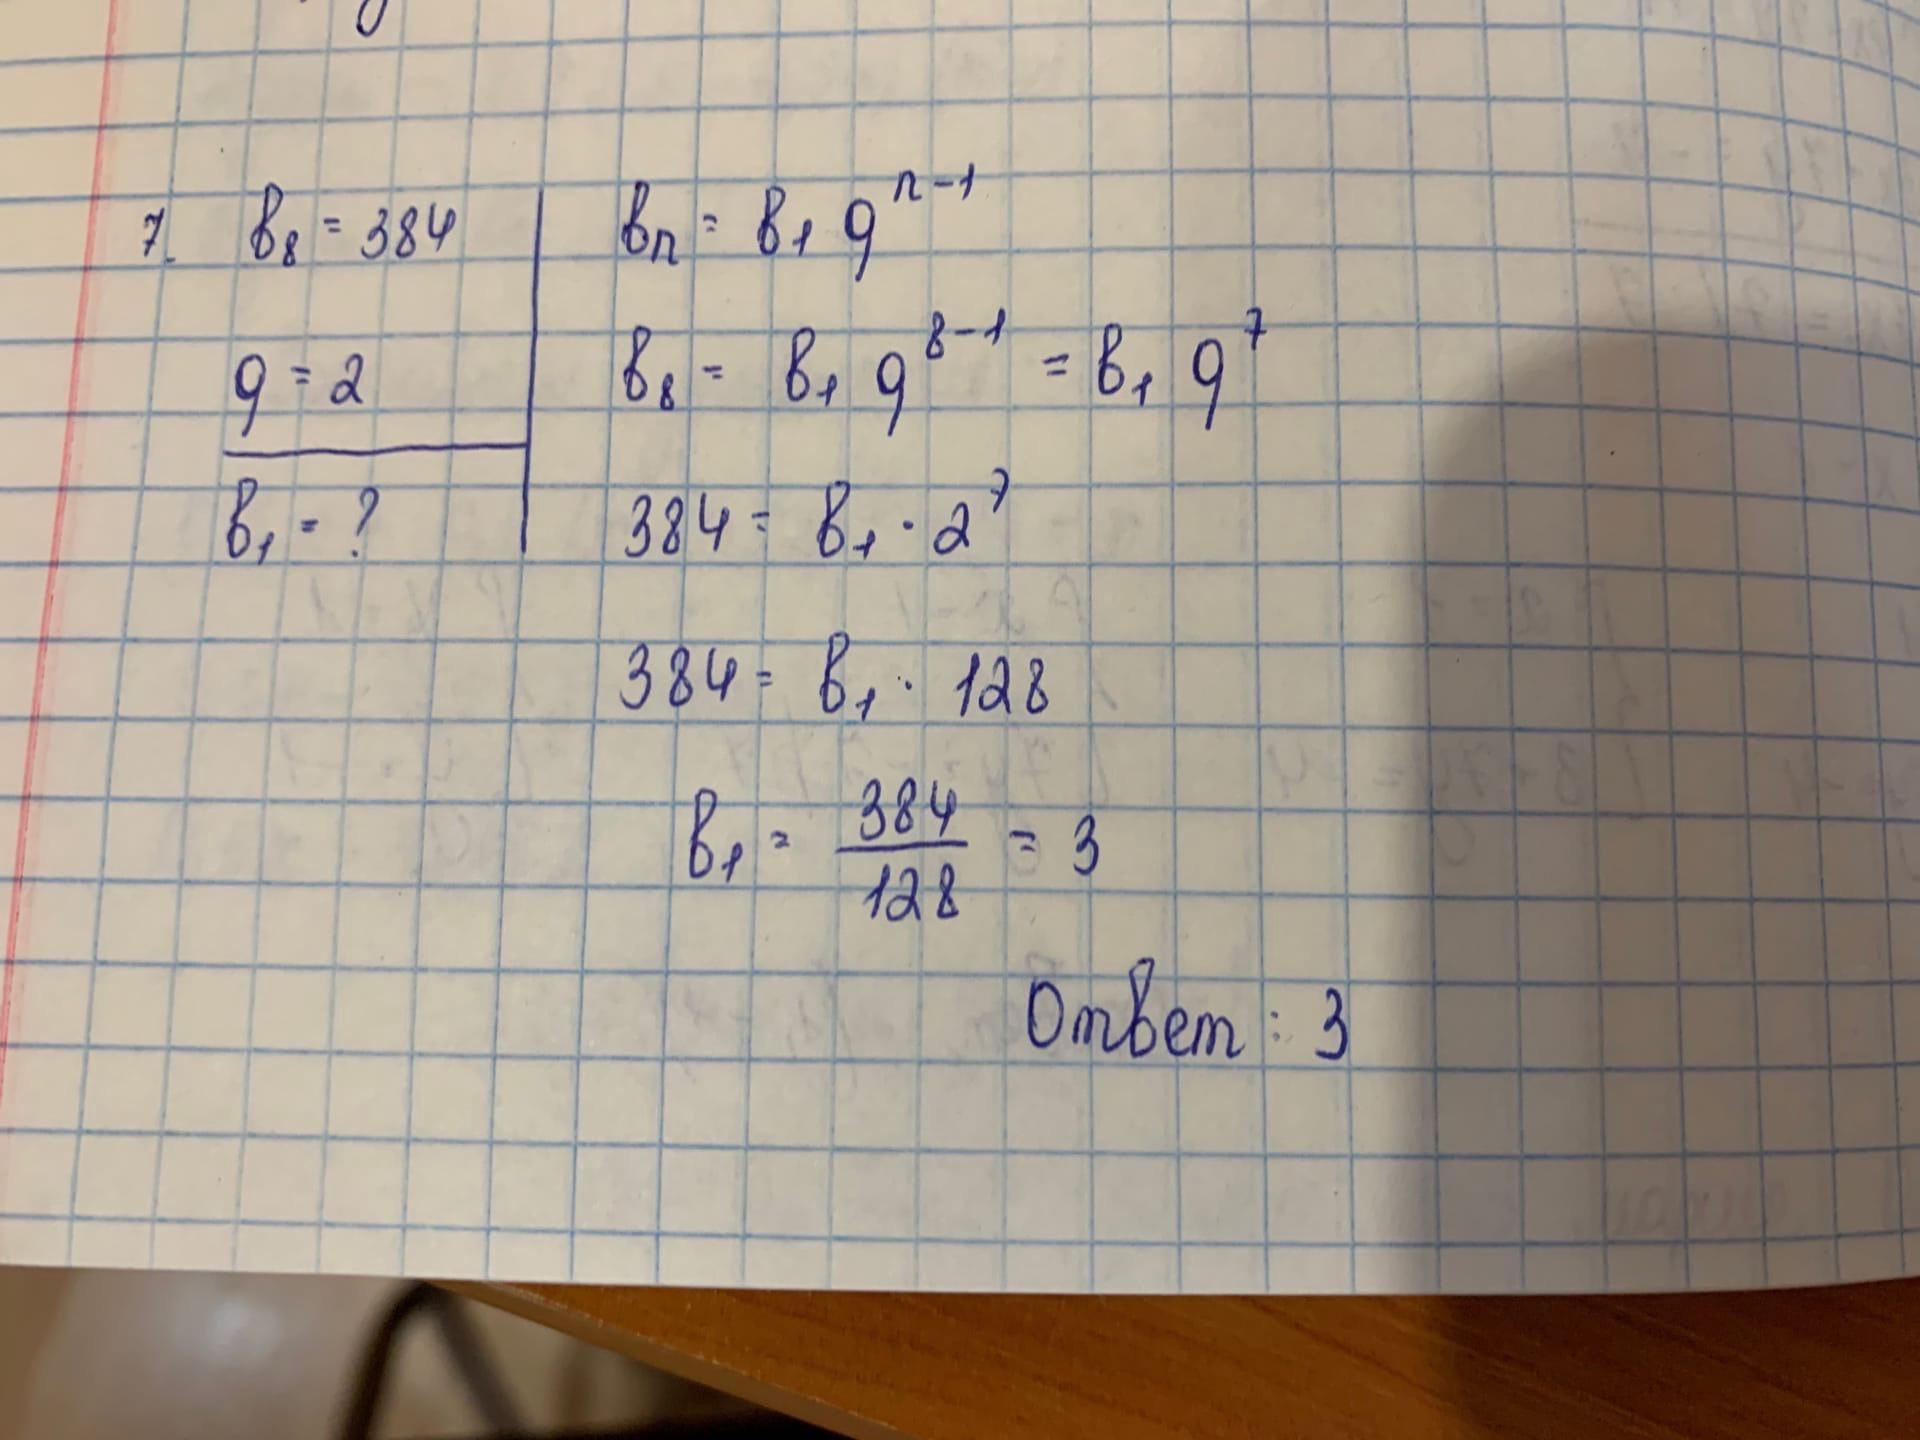 7. b₈ = 384
q = 2
b₁ = ?
bₙ = b₁ qⁿ⁻¹
b₈ = b₁ q⁸⁻¹ = b₁ q⁷
384 = b₁ · 2⁷
384 = b₁ · 128
b₁ = 384/128 = 3
Ответ : 3